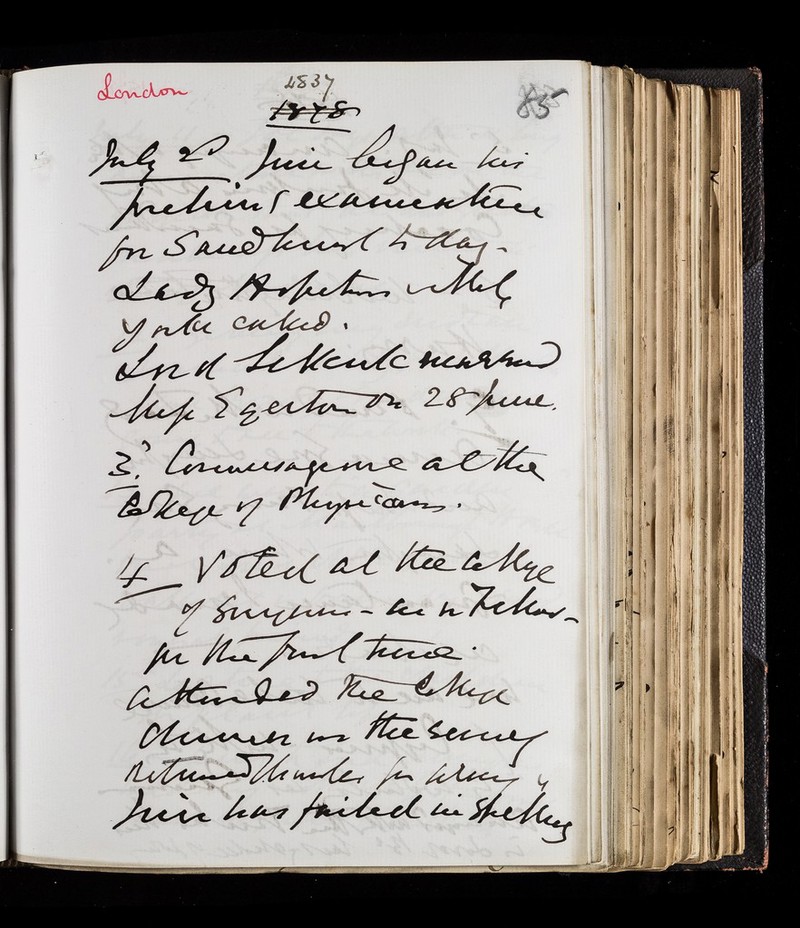 London
4837
1878
85
July 2d began his
prelim examination
for Sandhurst to day.
Lady Hopetoun & Mrs
Yorke called.
Lord married
Miss Egerton on 28 June.
3d. Conversazione at the
College of Physicians.
4 Voted at the College
of Surgeons - as a Fellow -
for the first time.
attended the College
dinner in the evening
returned thanks for army
has failed in spelling